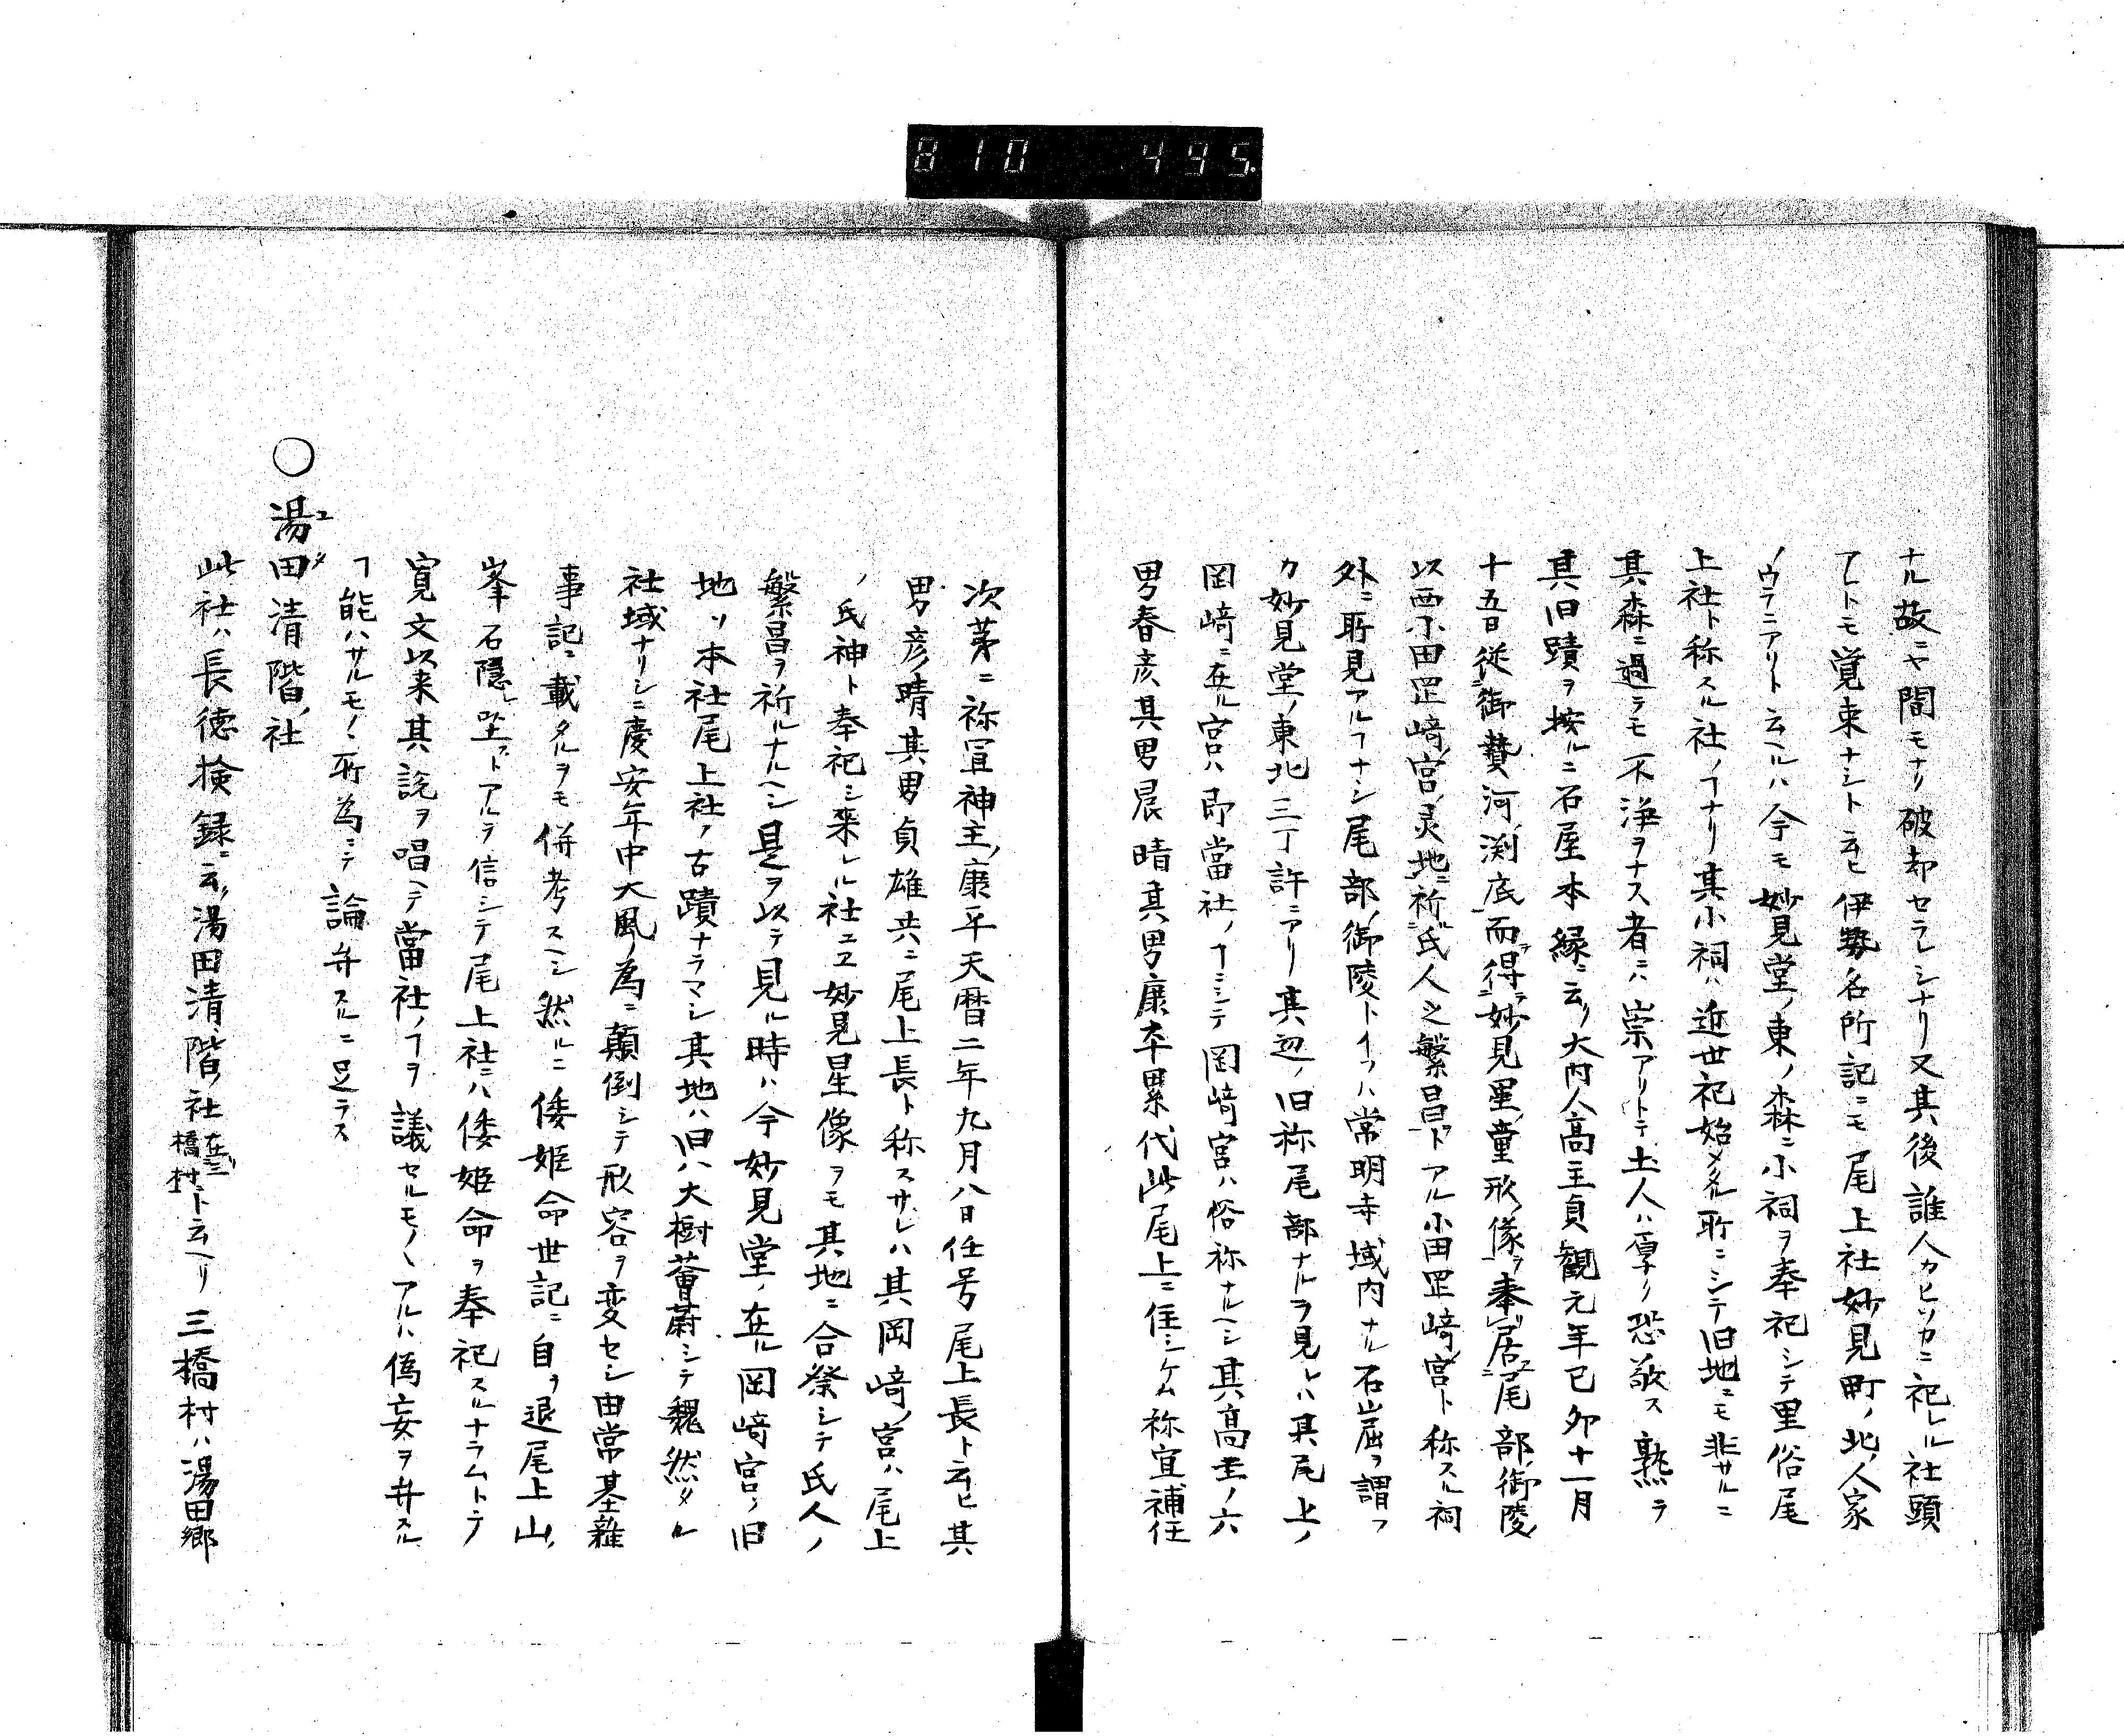 810 495.
ナル故ニヤ間モナリ破却セラレシナリ又其後誰人カヒソカニ祀レル社頭
アレトモ覚束ナシト云ヒ伊勢名所記ニモ尾上社妙見町ノ北ノ人家
ノウラニアリト云ヘルハ今モ妙見堂ノ東ノ森ニ小祠ヲ奉祀シテ里俗尾
上社ト称スル社ノヿナリ其小祠ハ近世祀始メタル所ニシテ旧地ニモ非サルニ
其森ニ過テモ不浄ヲナス者ニハ祟アリトテ土人ハ厚ク恐敬ス熟ラ
其旧蹟ヲ按ルニ石屋本縁ニ云ク大内人高主貞観元年己卯十一月
十五日従御贄河ノ渕底而得妙見星童形像ヲ奉居尾部御陵
以西小田罡﨑宮ノ灵地ニ祈氏人之繁昌トアル小田罡﨑宮ト称スル祠
外ニ所見アルヿナシ尾部御陵トイフハ常明寺域内ナル石崫ヲ謂フ
カ妙見堂ノ東北三丁許ニアリ其辺ノ旧称尾部ナルヲ見レハ其尾上ノ
岡﨑ニ在ル宮ハ即當社ノヿニシテ岡﨑宮ハ俗称ナルヘシ其高主ノ六
男春彦其男晨晴其男康平累代此尾上ニ住シケム祢宜補任
次第ニ祢宜神主康平天暦二年九月八日任号尾上長ト云ヒ其
男彦晴其男貞雄共ニ尾上長ト称スサレハ其岡﨑ノ宮ハ尾上
ノ氏神ト奉祀シ来レル社ユヱ妙見星像ヲモ其地ニ合祭シテ氏人ノ
繁昌ヲ祈ルナルヘシ是ヲ以テ見ル時ハ今妙見堂ノ在ル岡﨑宮ノ旧
地ソ本社尾上社ノ古蹟ナラマシ其地ハ旧ハ大樹薈蔚シテ魏然タル
社域ナリシニ慶安年中大風ノ為ニ顛倒シテ形容ヲ変セシ由常基雑
事記ニ載タルヲモ併考スヘシ然ルニ倭姫命世記ニ自ラ退尾上山ノ
峯石隠レ坐トアルヲ信シテ尾上社ニハ倭姫命ヲ奉祀スルナラムトテ
寛文以来其説ヲ唱ヘテ當社ノヿヲ議セルモノヽアルハ偽妄ヲ弁スル
ヿ能ハサルモノヽ所為ニテ論弁スルニ足ラス
○湯田清階ノ社
此社ハ長徳検録ニ云ク湯田清階ノ社在三橋村ト云ヘリ三橋村ハ湯田郷